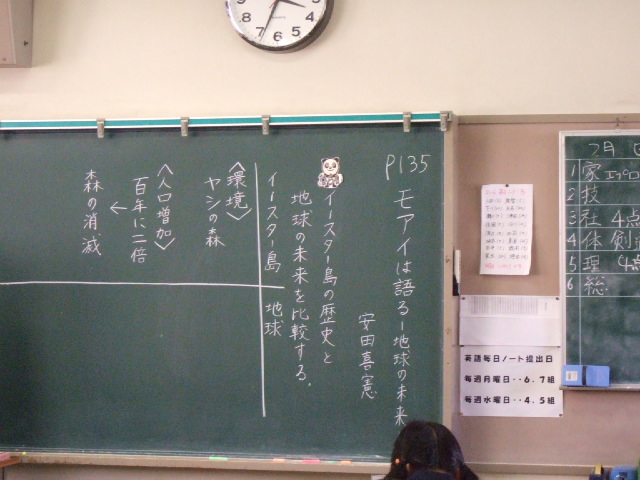 P135
モアイは語る―地球の未来
安田喜憲
イースター島の歴史と
地球の未来を比較する。
イースター島
地球
〈環境〉
ヤシの森
〈人口増加〉
百年に二倍
↓
森の消滅
英語毎日ノート提出日
毎週月曜日‥6.7組
毎週水曜日‥4.5組
1 家 エプロ
2 技
3 社 4点
4 体 剣
5 理 4点
6 総
8
7
6
5
4
3